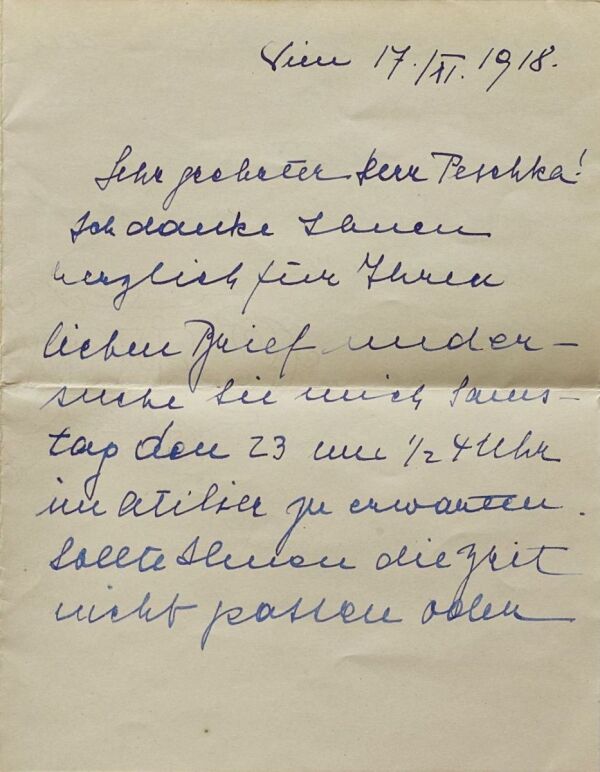 Wien 17./XI. 1918.
Sehr geehrter Herr Peschka!
Ich danke Ihnen
herzlich für Ihren
lieben Brief und er-
suche Sie mich Sams-
tag den 23 um ½ 4 Uhr
im Atelier zu erwarten.
Sollte Ihnen die Zeit
nicht passen oder